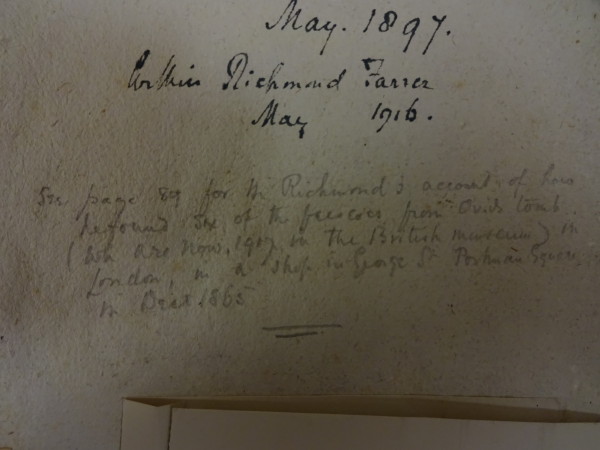 May. 1897.
Richmond Farrer
May 1916.
See page 89 for Mr Richmond's account of how
he found six of the frescoes from Ovids tomb
(wh are now, 1917 in the British museum) in
London, in a shop in George St Portman Square
in Decr 1865